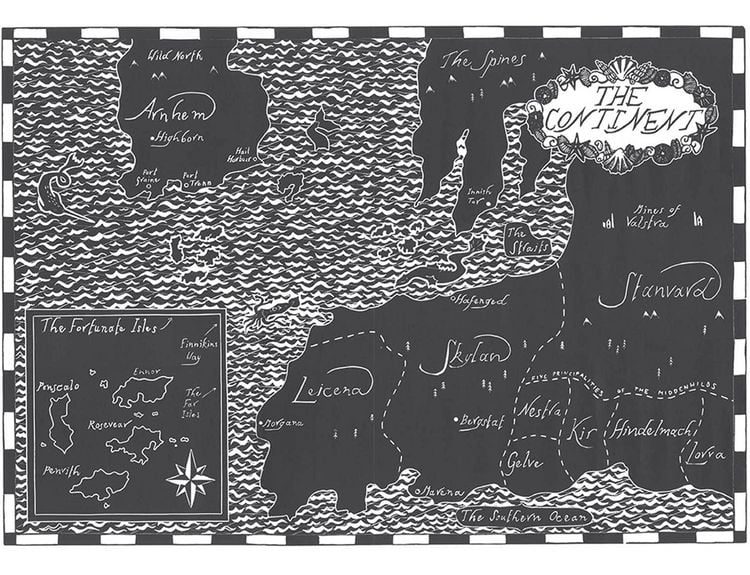 Wild North
Arnhem
Highborn
Hail
Harbour
Port
Graine
Port
Trann
The Spines
THE
CONTINENT
Innish
Tor
The
Straits
Mines of
Valstra
Stanvard
Hafenged
Skylan
Bergstaf
Leicena
Morgana
Marena
FIVE PRINCIPALITIES OF THE MIDDENHILDS
Nestra
Gelve
Kir
Hindelmach
Lovra
The Southern Ocean
The Fortunate Isles
Finnikins
Way
The
Far
Isles
Ennor
Penscalo
Rosevear
Penrith